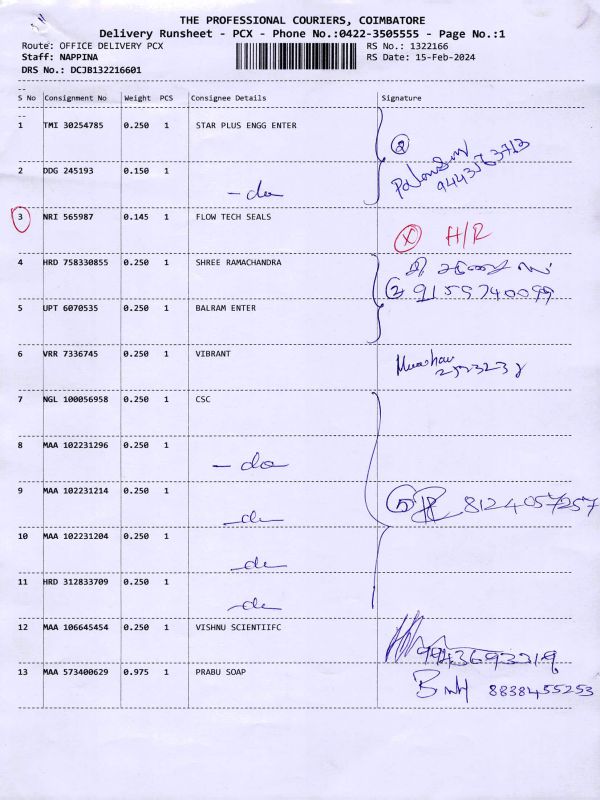 THE PROFESSIONAL COURIERS, COIMBATORE
Delivery Runsheet - PCX - Phone No.:0422-3505555 - Page No.:1
Route: OFFICE DELIVERY PCX RS No.: 1322166
Staff: NAPPINA RS Date: 15-Feb-2024
DRS No.: DCJB132216601
--
S No Consignment No Weight PCS Consignee Details Signature
--
1 TMI 30254785 0.250 1 STAR PLUS ENGG ENTER
2
9443763713
2 DDG 245193 0.150 1 - do
3 NRI 565987 0.145 1 FLOW TECH SEALS X H/R
4 HRD 758330855 0.250 1 SHREE RAMACHANDRA
2 9159740099
5 UPT 6070535 0.250 1 BALRAM ENTER
6 VRR 7336745 0.250 1 VIBRANT
7 NGL 100056958 0.250 1 CSC
8 MAA 102231296 0.250 1 - do
9 MAA 102231214 0.250 1 - do 5 8124057257
10 MAA 102231204 0.250 1 - do
11 HRD 312833709 0.250 1 - do
12 MAA 106645454 0.250 1 VISHNU SCIENTIIFC
13 MAA 573400629 0.975 1 PRABU SOAP 8838455253